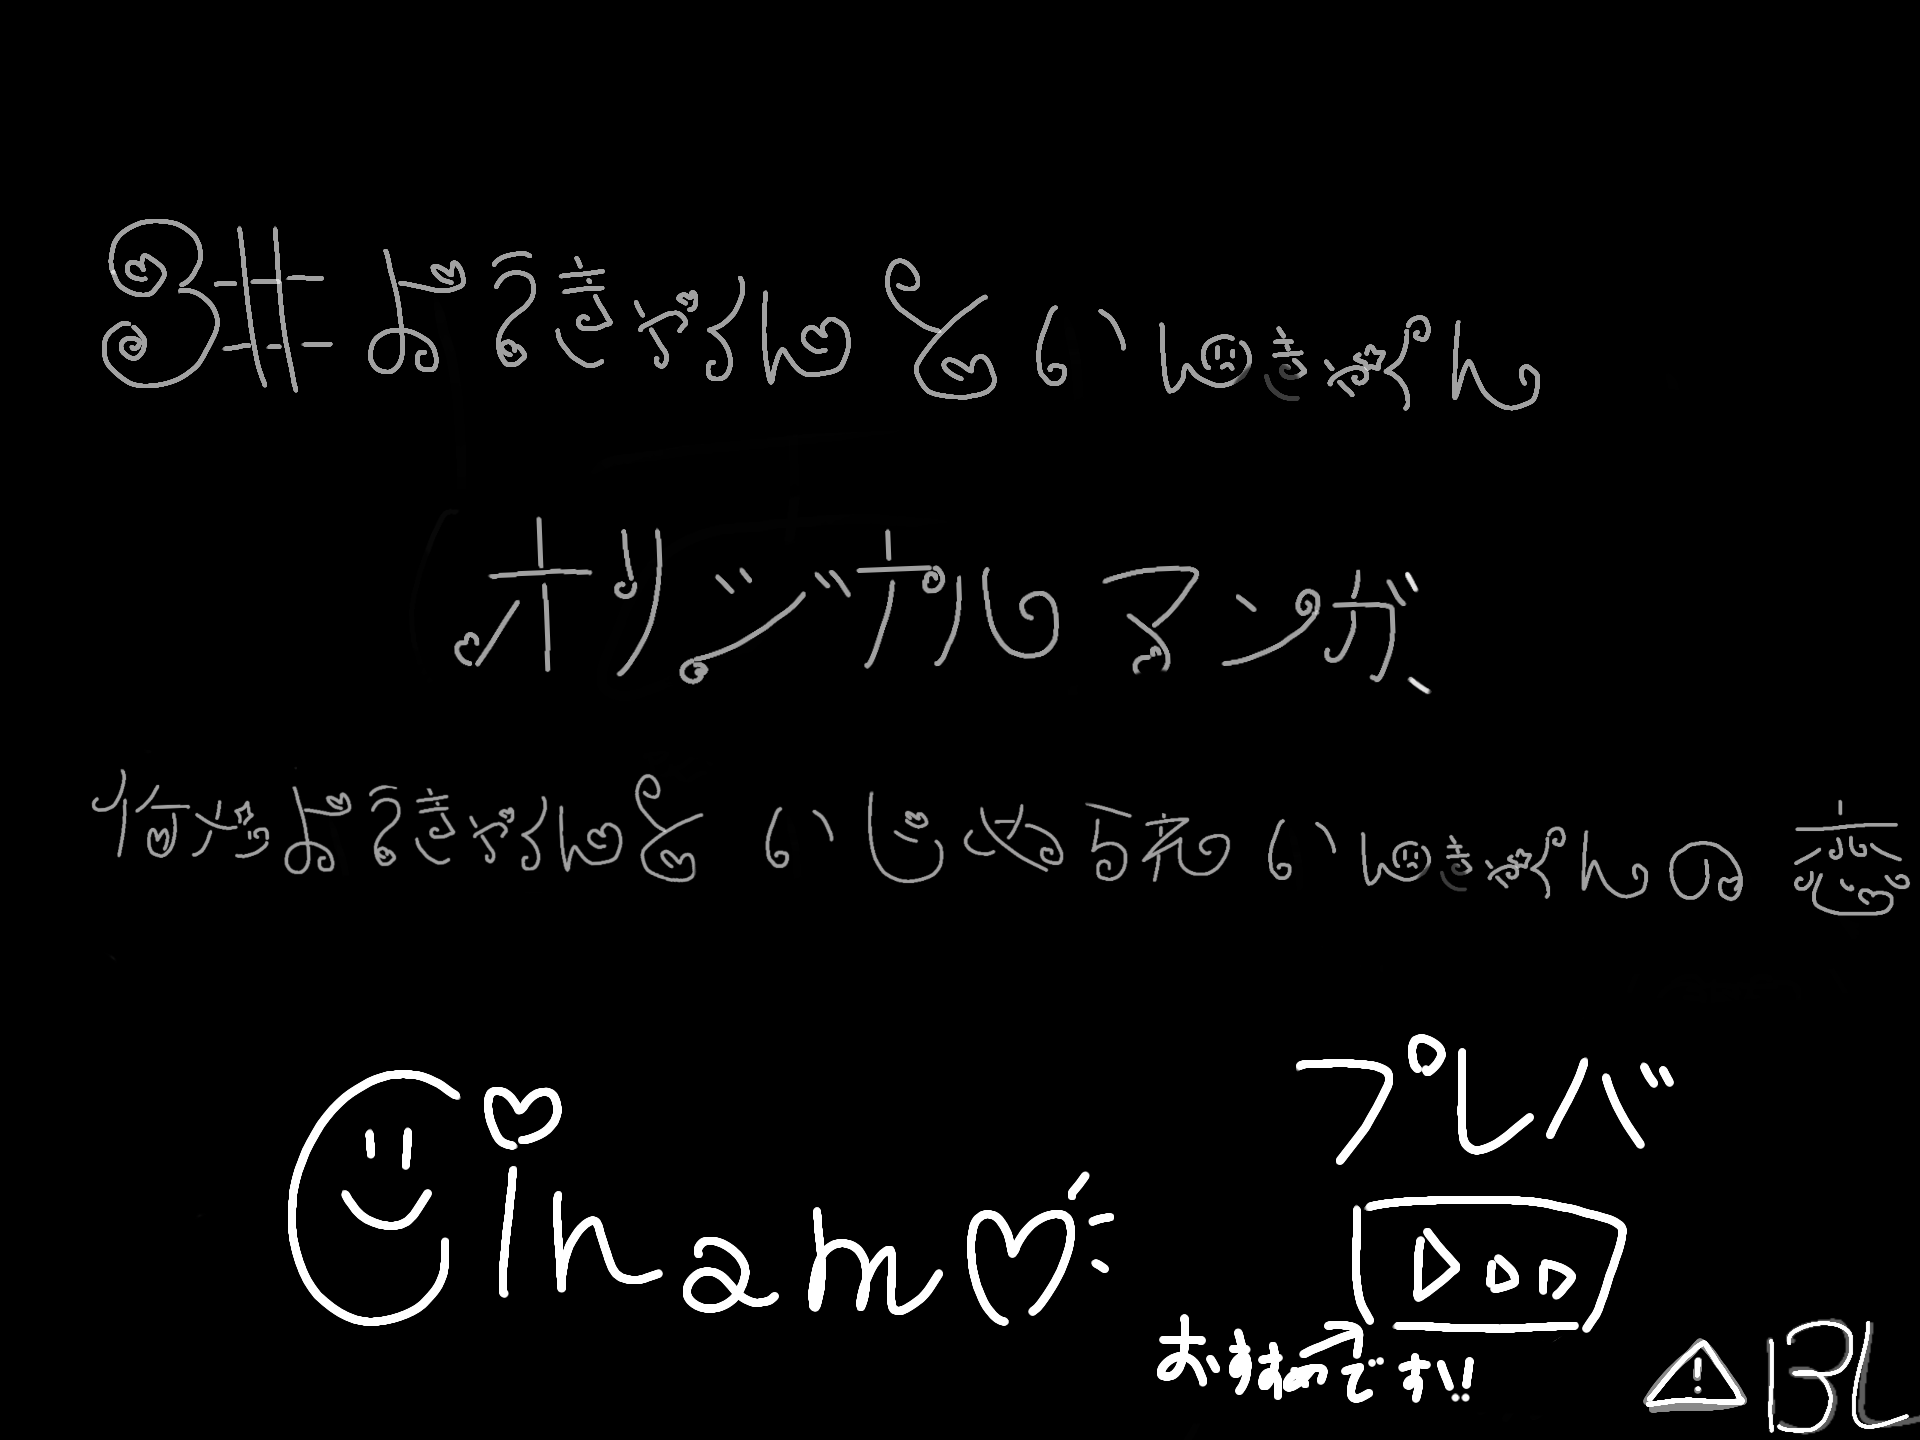 3井ようきゃくんといんきゃくん
オリジナルマンガ、
ようきゃくんといじめられいんきゃくんの恋
Cinam
プレバ
Don
おすすめです!!
BL